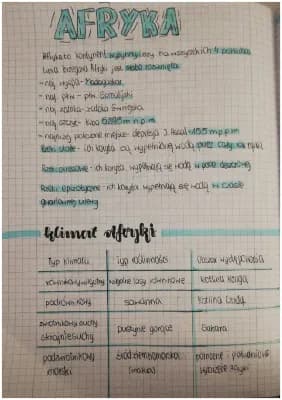 AFRYKA
Afryka to kontynent wyżynny
Linia brzegowa Afryki jest słabo rozwinięta
- naj. wyspa - Madagaskar
- naj. płw. - płw. Somalijski
- naj. zatoka - zatoka Gwinejska
- naj. szczyt - Kibo 5895 m n.p.m.
- najniżej położone miejsce - depresja J. Assal -155 m p.p.m
Rzeki stałe - ich koryta są wypełnione wodą przez cały rok
Rzeki okresowe - ich koryta wypełniają się wodą w porze deszczowej
Rzeki epizodyczne - ich koryta wypełniają się wodą w czasie
gwałtownej ulewy
Klimat Afryki
Typ klimatu Typ roślinności Obszar występowania
równikowy wilgotny wilgotne lasy równikowe kotlina Konga
podrównikowy sawanna Kotlina Czadu
zwrotnikowy suchy
skrajnie suchy pustynie gorące Sahara
podzwrotnikowy
morski śródziemnomorska
(makia) północne i południowe
wybrzeże Afryki